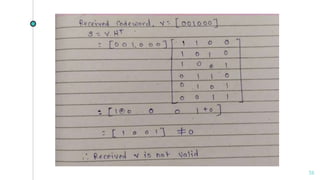 Received Codeword, v = [001000]
S = v.Hᵀ
= [001,000] [1 1 0 0
1 0 1 0
1 0 0 1
0 1 1 0
0 1 0 1
0 0 1 1]
= [1⊕0 0 0 1+0]
= [1 0 0 1] ≠ 0
∴ Received v is not valid